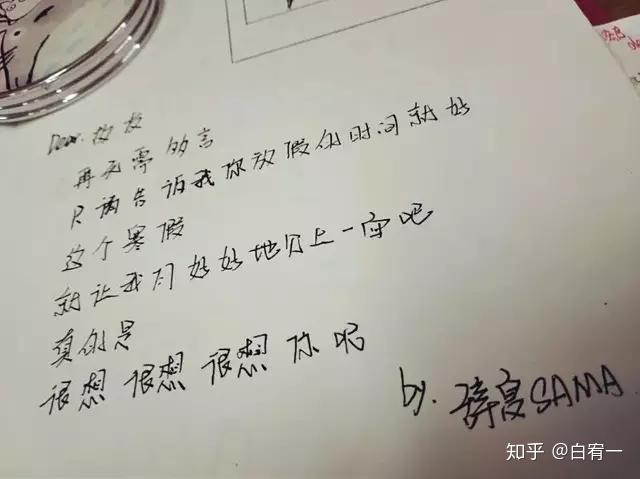 Dear. 故友
再无需多言
只请告诉我你放假的时间就好
这个寒假
就让我们好好地贝上一面吧
真的是
很想 很想 很想 你呢
by. 辞夏SAMA
知乎 @白宥一